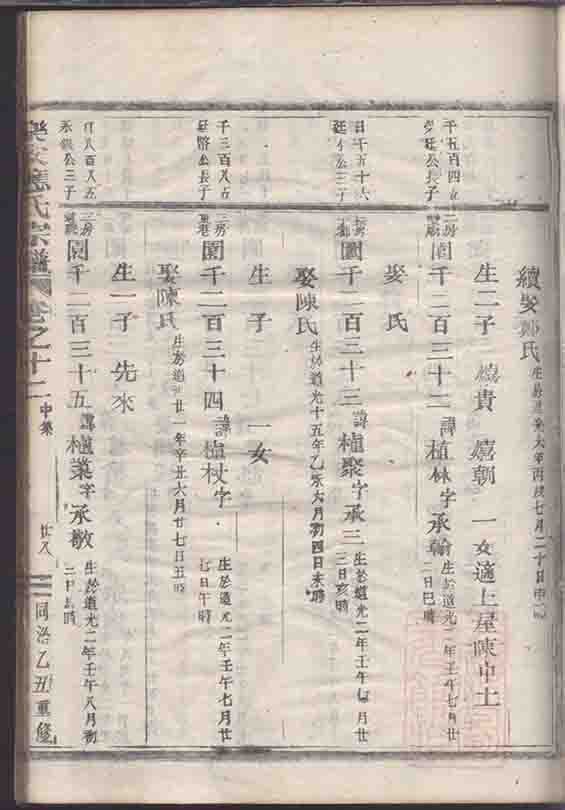 續娶鄭氏 生於道光六年丙戌七月二十日申
生二子 貴 嘉朝 一女適上屋陳中土
千五百四 廷公長子
三房 園千二百三十二 諱植林字承翰 生於道光二年壬午七月廿二日巳時
娶 氏
園千二百三十三 諱植聚字承三 生於道光二年壬午七月廿三日亥時
娶陳氏 生於道光十五年乙未六月初四日未時
生 子 一女
千三百八 公長子
三房 園千二百三十四 諱植杖字 生於道光二年壬午七月廿七日午時
娶陳氏 生於道光廿一年辛丑六月廿七日丑時
生一子 先來
八百八五 公三子
三房 園千二百三十五 諱植業字承敬 生於道光二年壬午八月初二日 時
樂安應氏宗譜 卷之十二 中集 廿八 同治乙丑重修